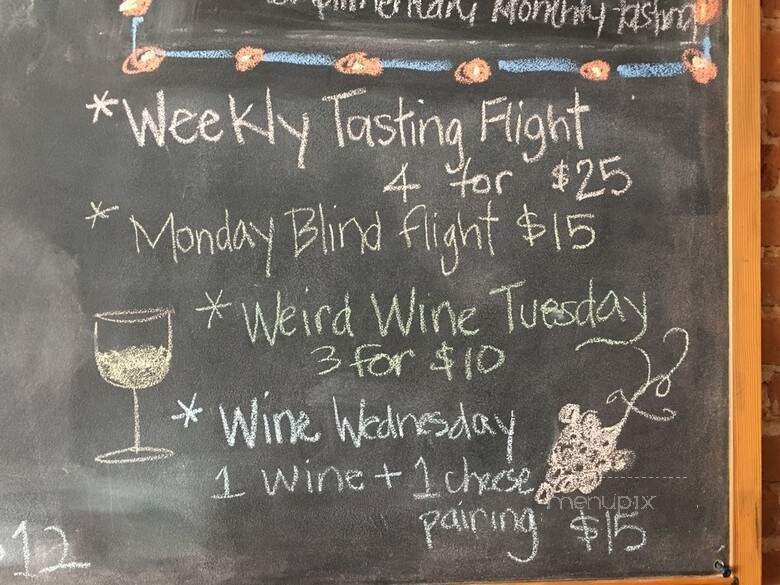 Complimentary Monthly tasting
*Weekly Tasting Flight
4 for $25
*Monday Blind flight $15
*Weird Wine Tuesday
3 for $10
*Wine Wednesday
1 wine + 1 cheese
menupix
pairing $15
12